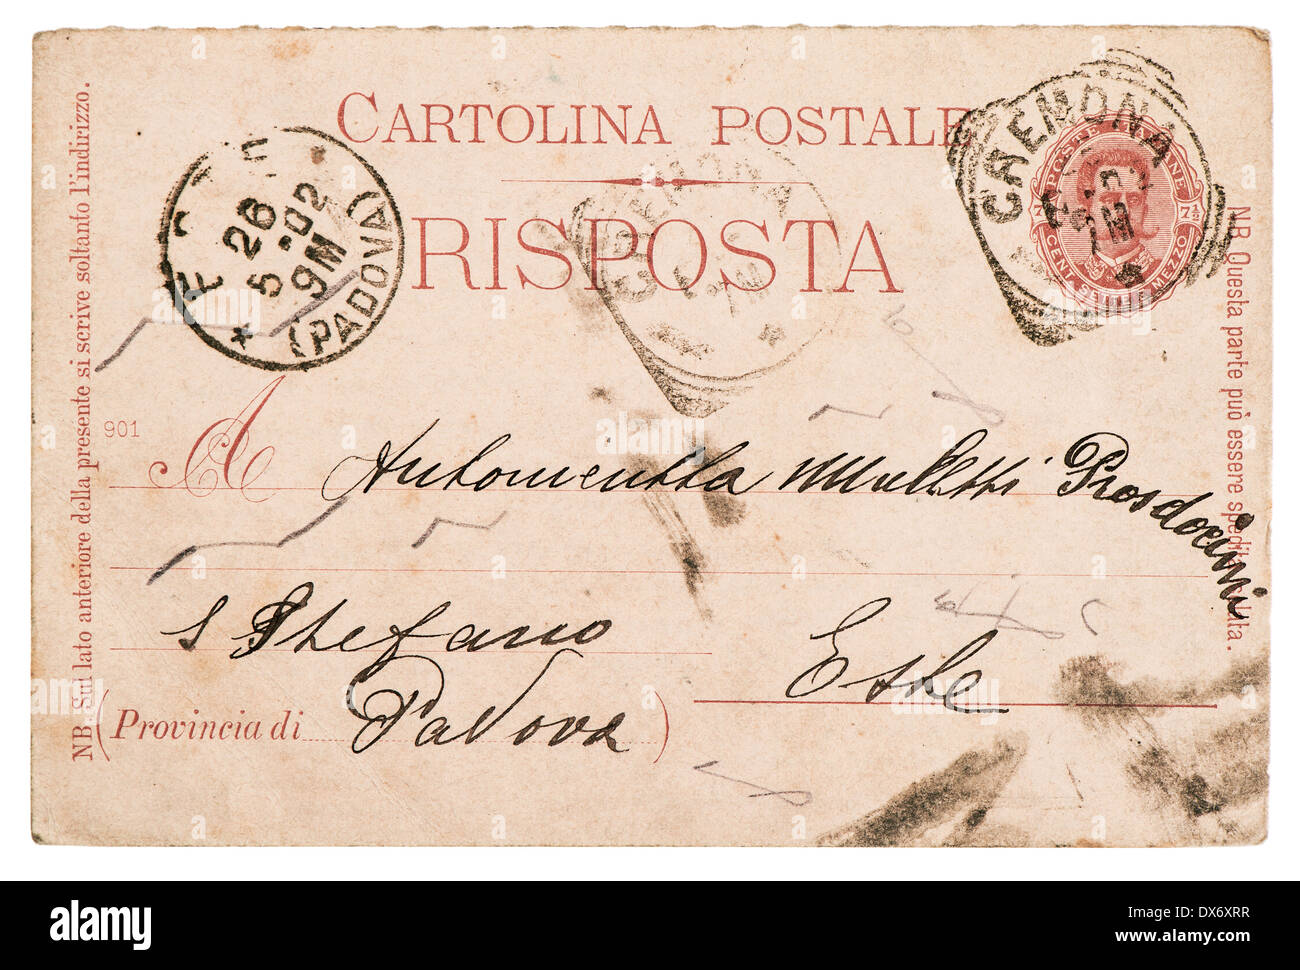 NB. Sul lato anteriore della presente si scrive soltanto l'indirizzo.
CARTOLINA POSTALE
RISPOSTA
26
5-02
9M
* (PADOVA)
CREMONA
CREMONA
7M
POSTE ITALIANE
7½
CENT. SETTE E MEZZO
NB. Questa parte può essere spedita
901
A Antonietta Muletti Prosdocimi
S Stefano
Este
(Provincia di Padova)
alamy
Image ID: DX6XRR
www.alamy.com